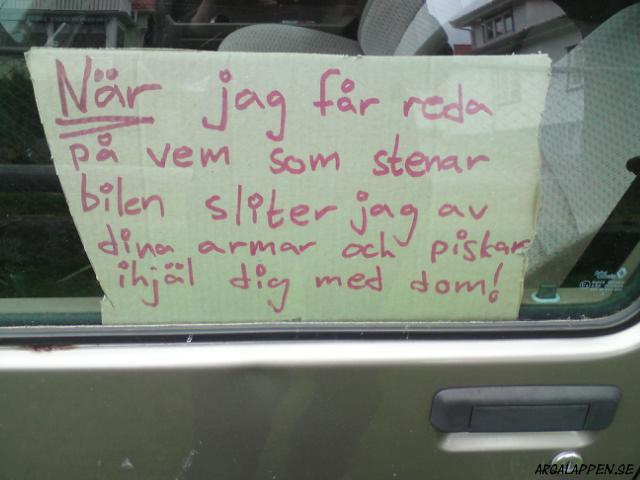 När jag får reda
på vem som stenar
bilen sliter jag av
dina armar och piskar
ihjäl dig med dom!
ARGALAPPEN.SE